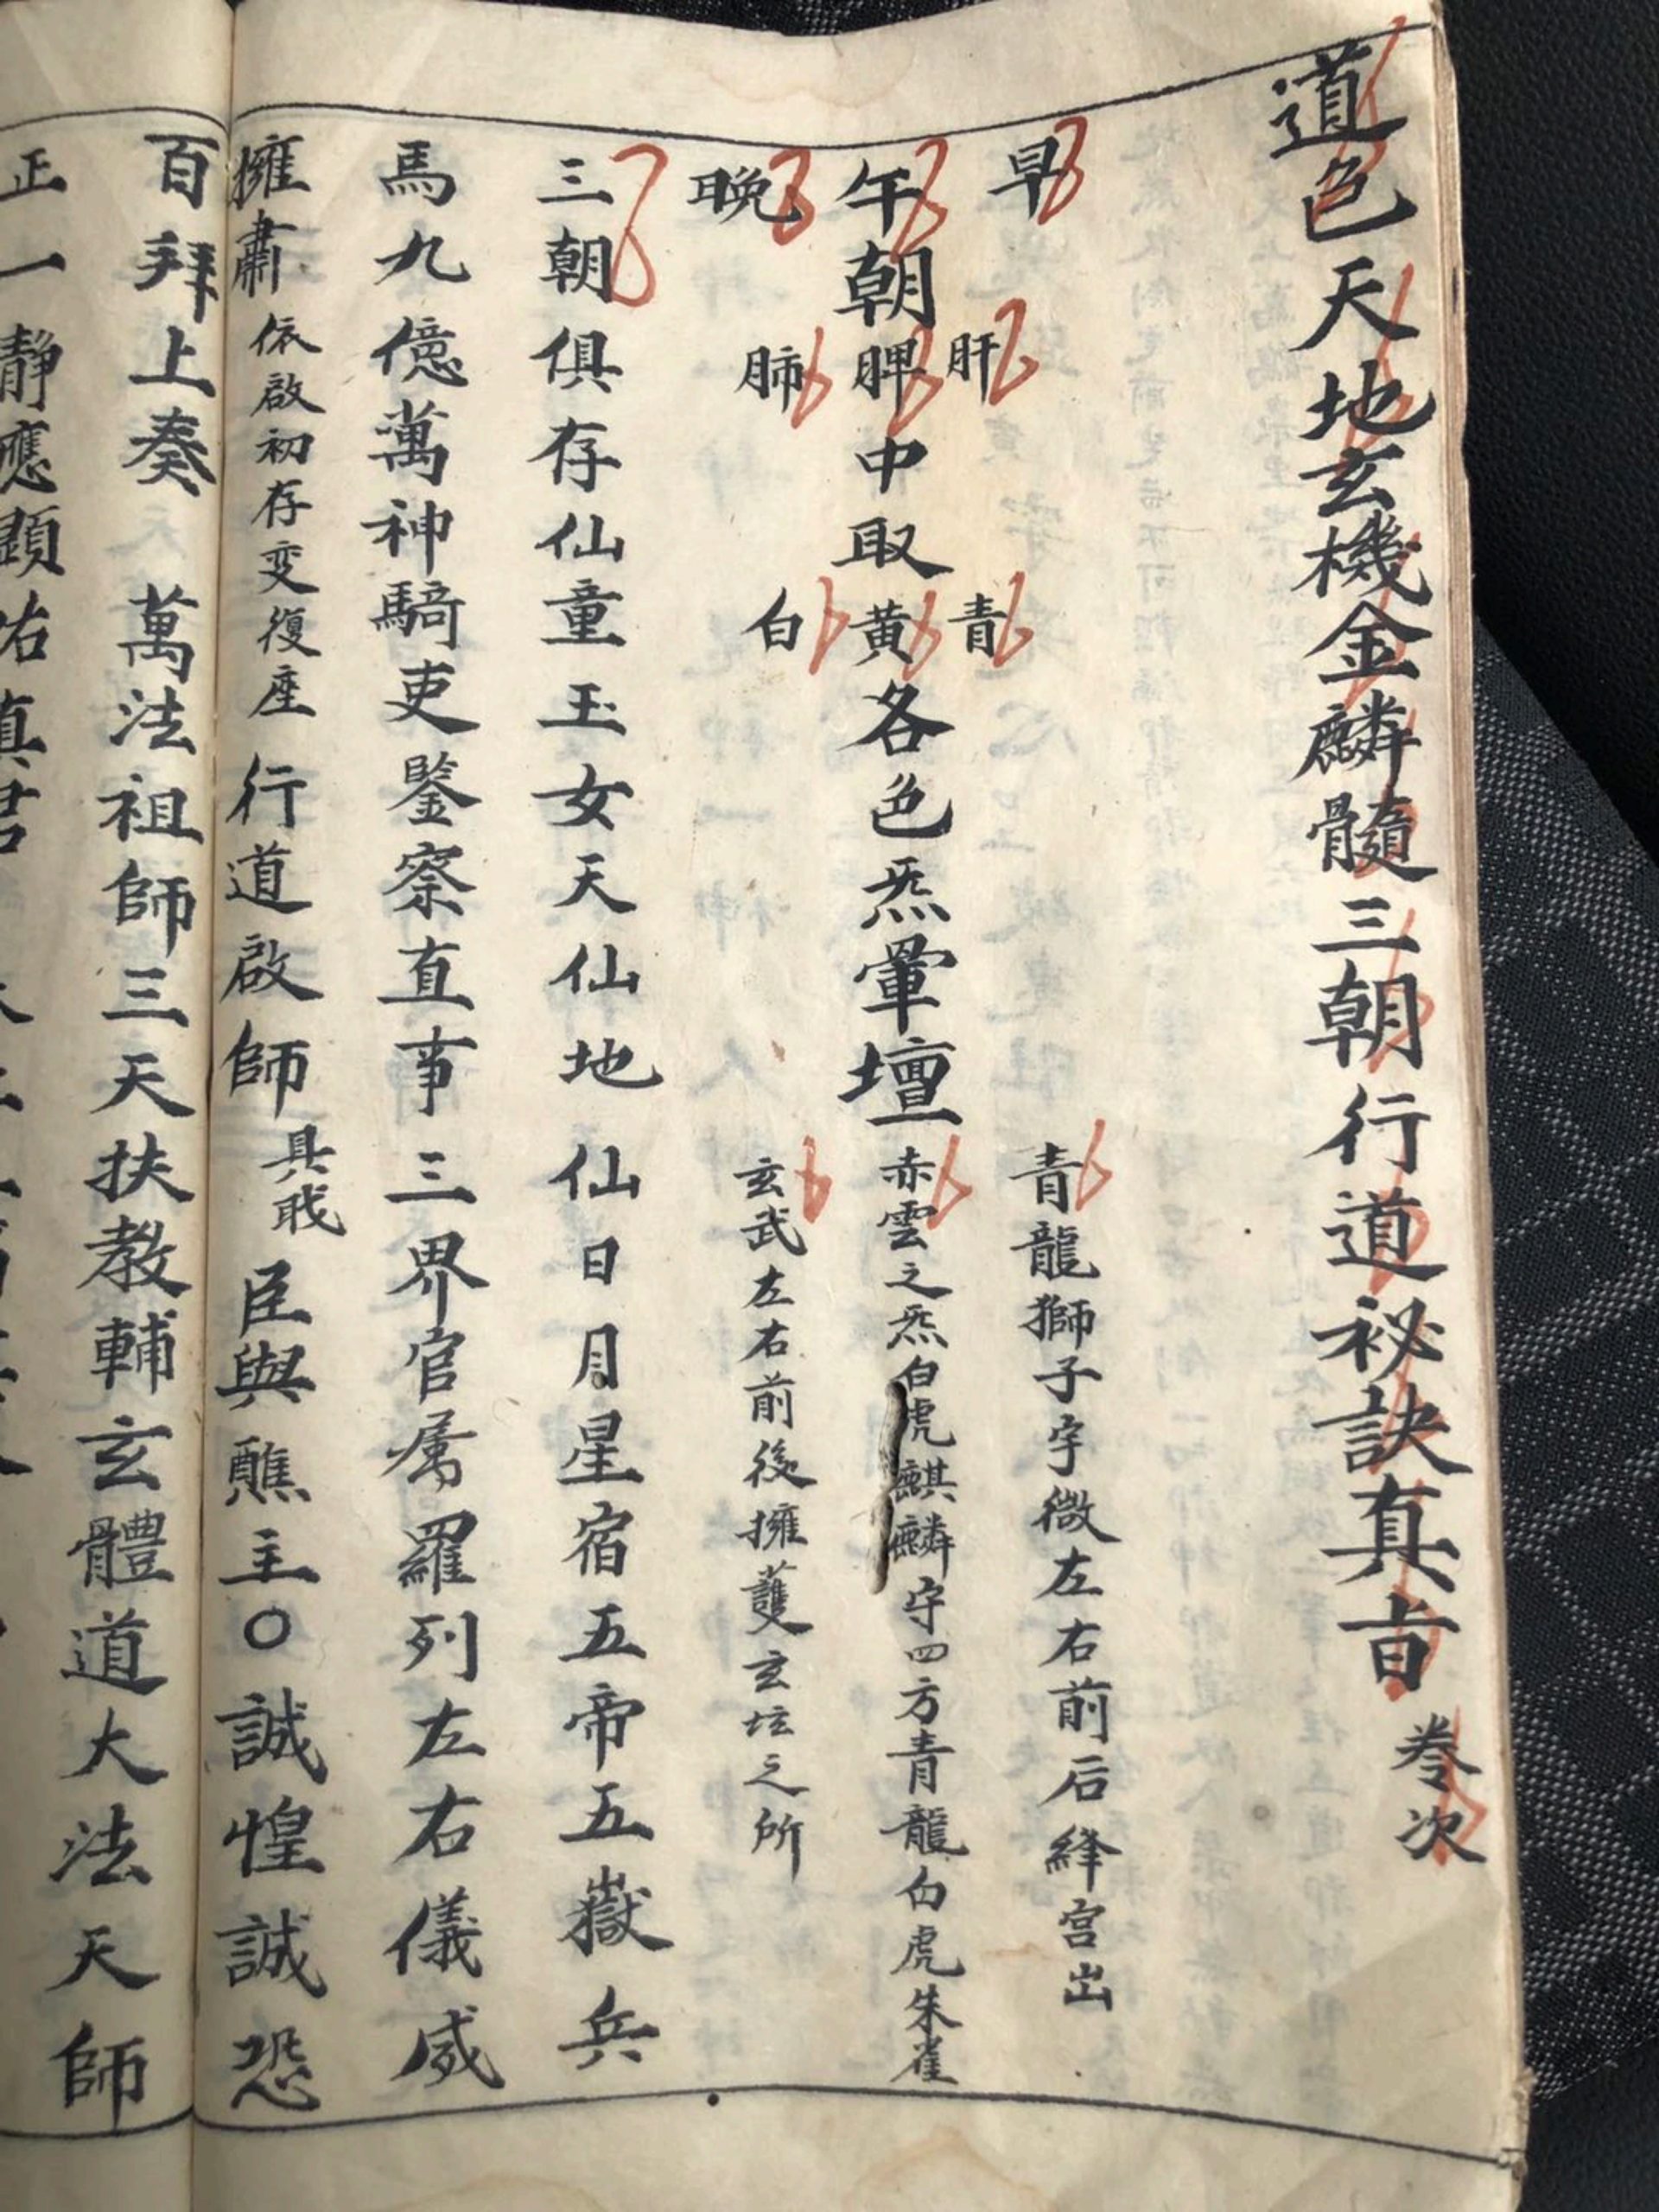 道色天地玄機金麟髓三朝行道祕訣真旨 卷次
早 肝 青 青龍獅子字微左右前后絳宮出
午朝脾中取黃各色炁罩壇 赤雲之炁白虎麒麟守四方青龍白虎朱雀
晩 肺 白 玄武左右前後擁護玄坛之所
三朝俱存仙童玉女天仙地仙日月星宿五帝五嶽兵
馬九億萬神騎吏鑒察直事三界官屬羅列左右儀威
擁肅依啟初存变復座行道啟師具戝臣與醮主〇誠惶誠恐
百拜上奏 萬法祖師三天扶教輔玄體道大法天師
正一靜應顯佑真君